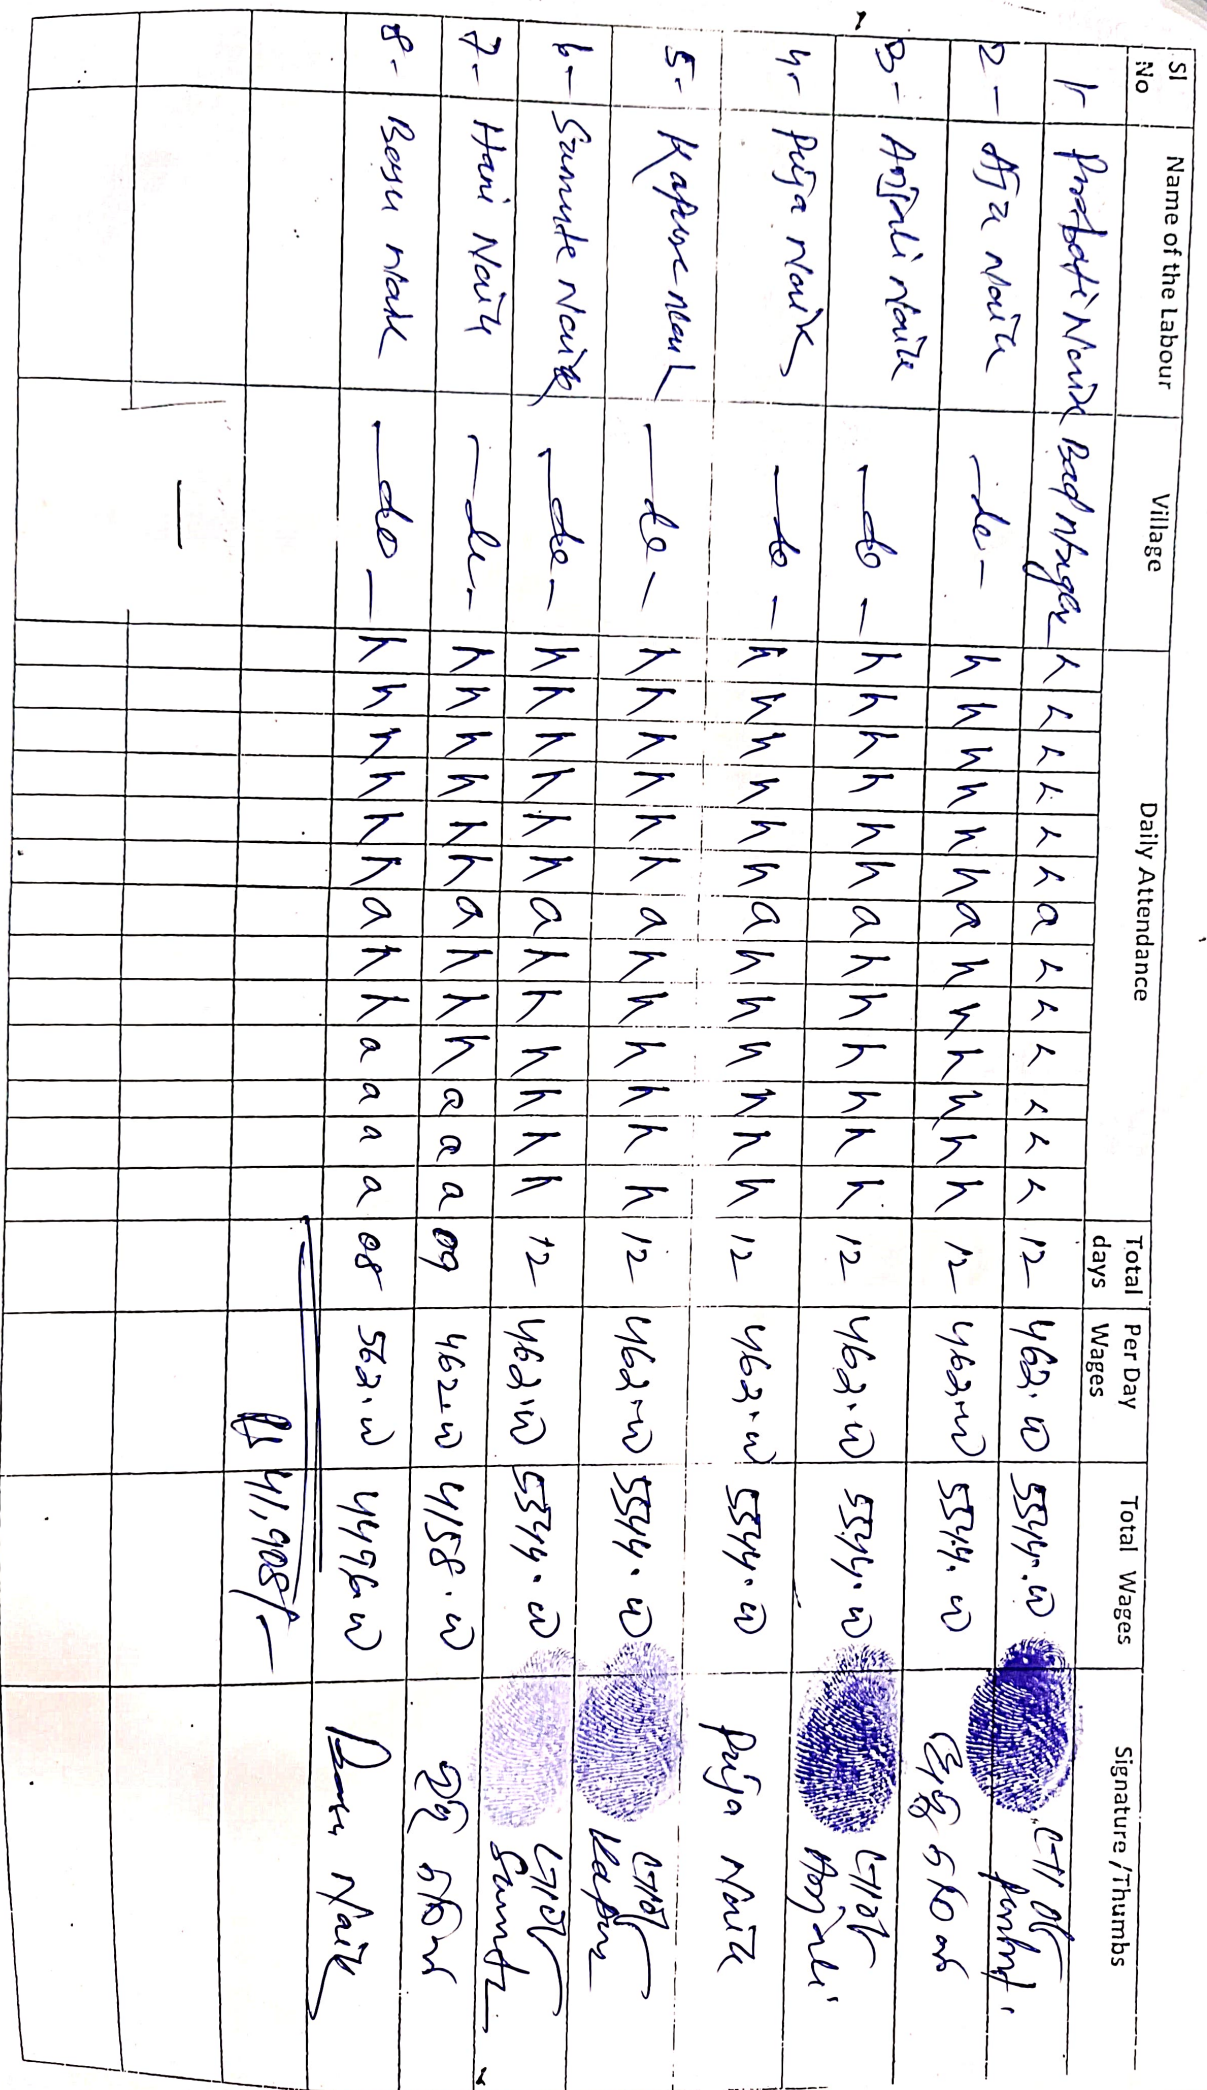 Sl No Name of the Labour Village Daily Attendance Total days Per Day Wages Total Wages Signature /Thumbs
1- Naik h h h h h h a h h h h h h 12 462.00 5544.00 LTI of
2- Naik -do- h h h h h h a h h h h h h 12 462.00 5544.00
3- Anjali Naik -do- h h h h h h a h h h h h h 12 462.00 5544.00 LTI of Anjali
4- Puja Naik -do- h h h h h h a h h h h h h 12 462.00 5544.00 Puja Naik
5- Naik -do- h h h h h h a h h h h h h 12 462.00 5544.00 LTI of
6- Naik -do- h h h h h h a h h h h h h 12 462.00 5544.00 LTI of
7- Hari Naik -do- h h h h h h a h h h a a a 09 462.00 4158.00
8- Naik -do- h h h h h h a h h a a a a 08 562.00 4496.00 Naik
Rs 41,908/-